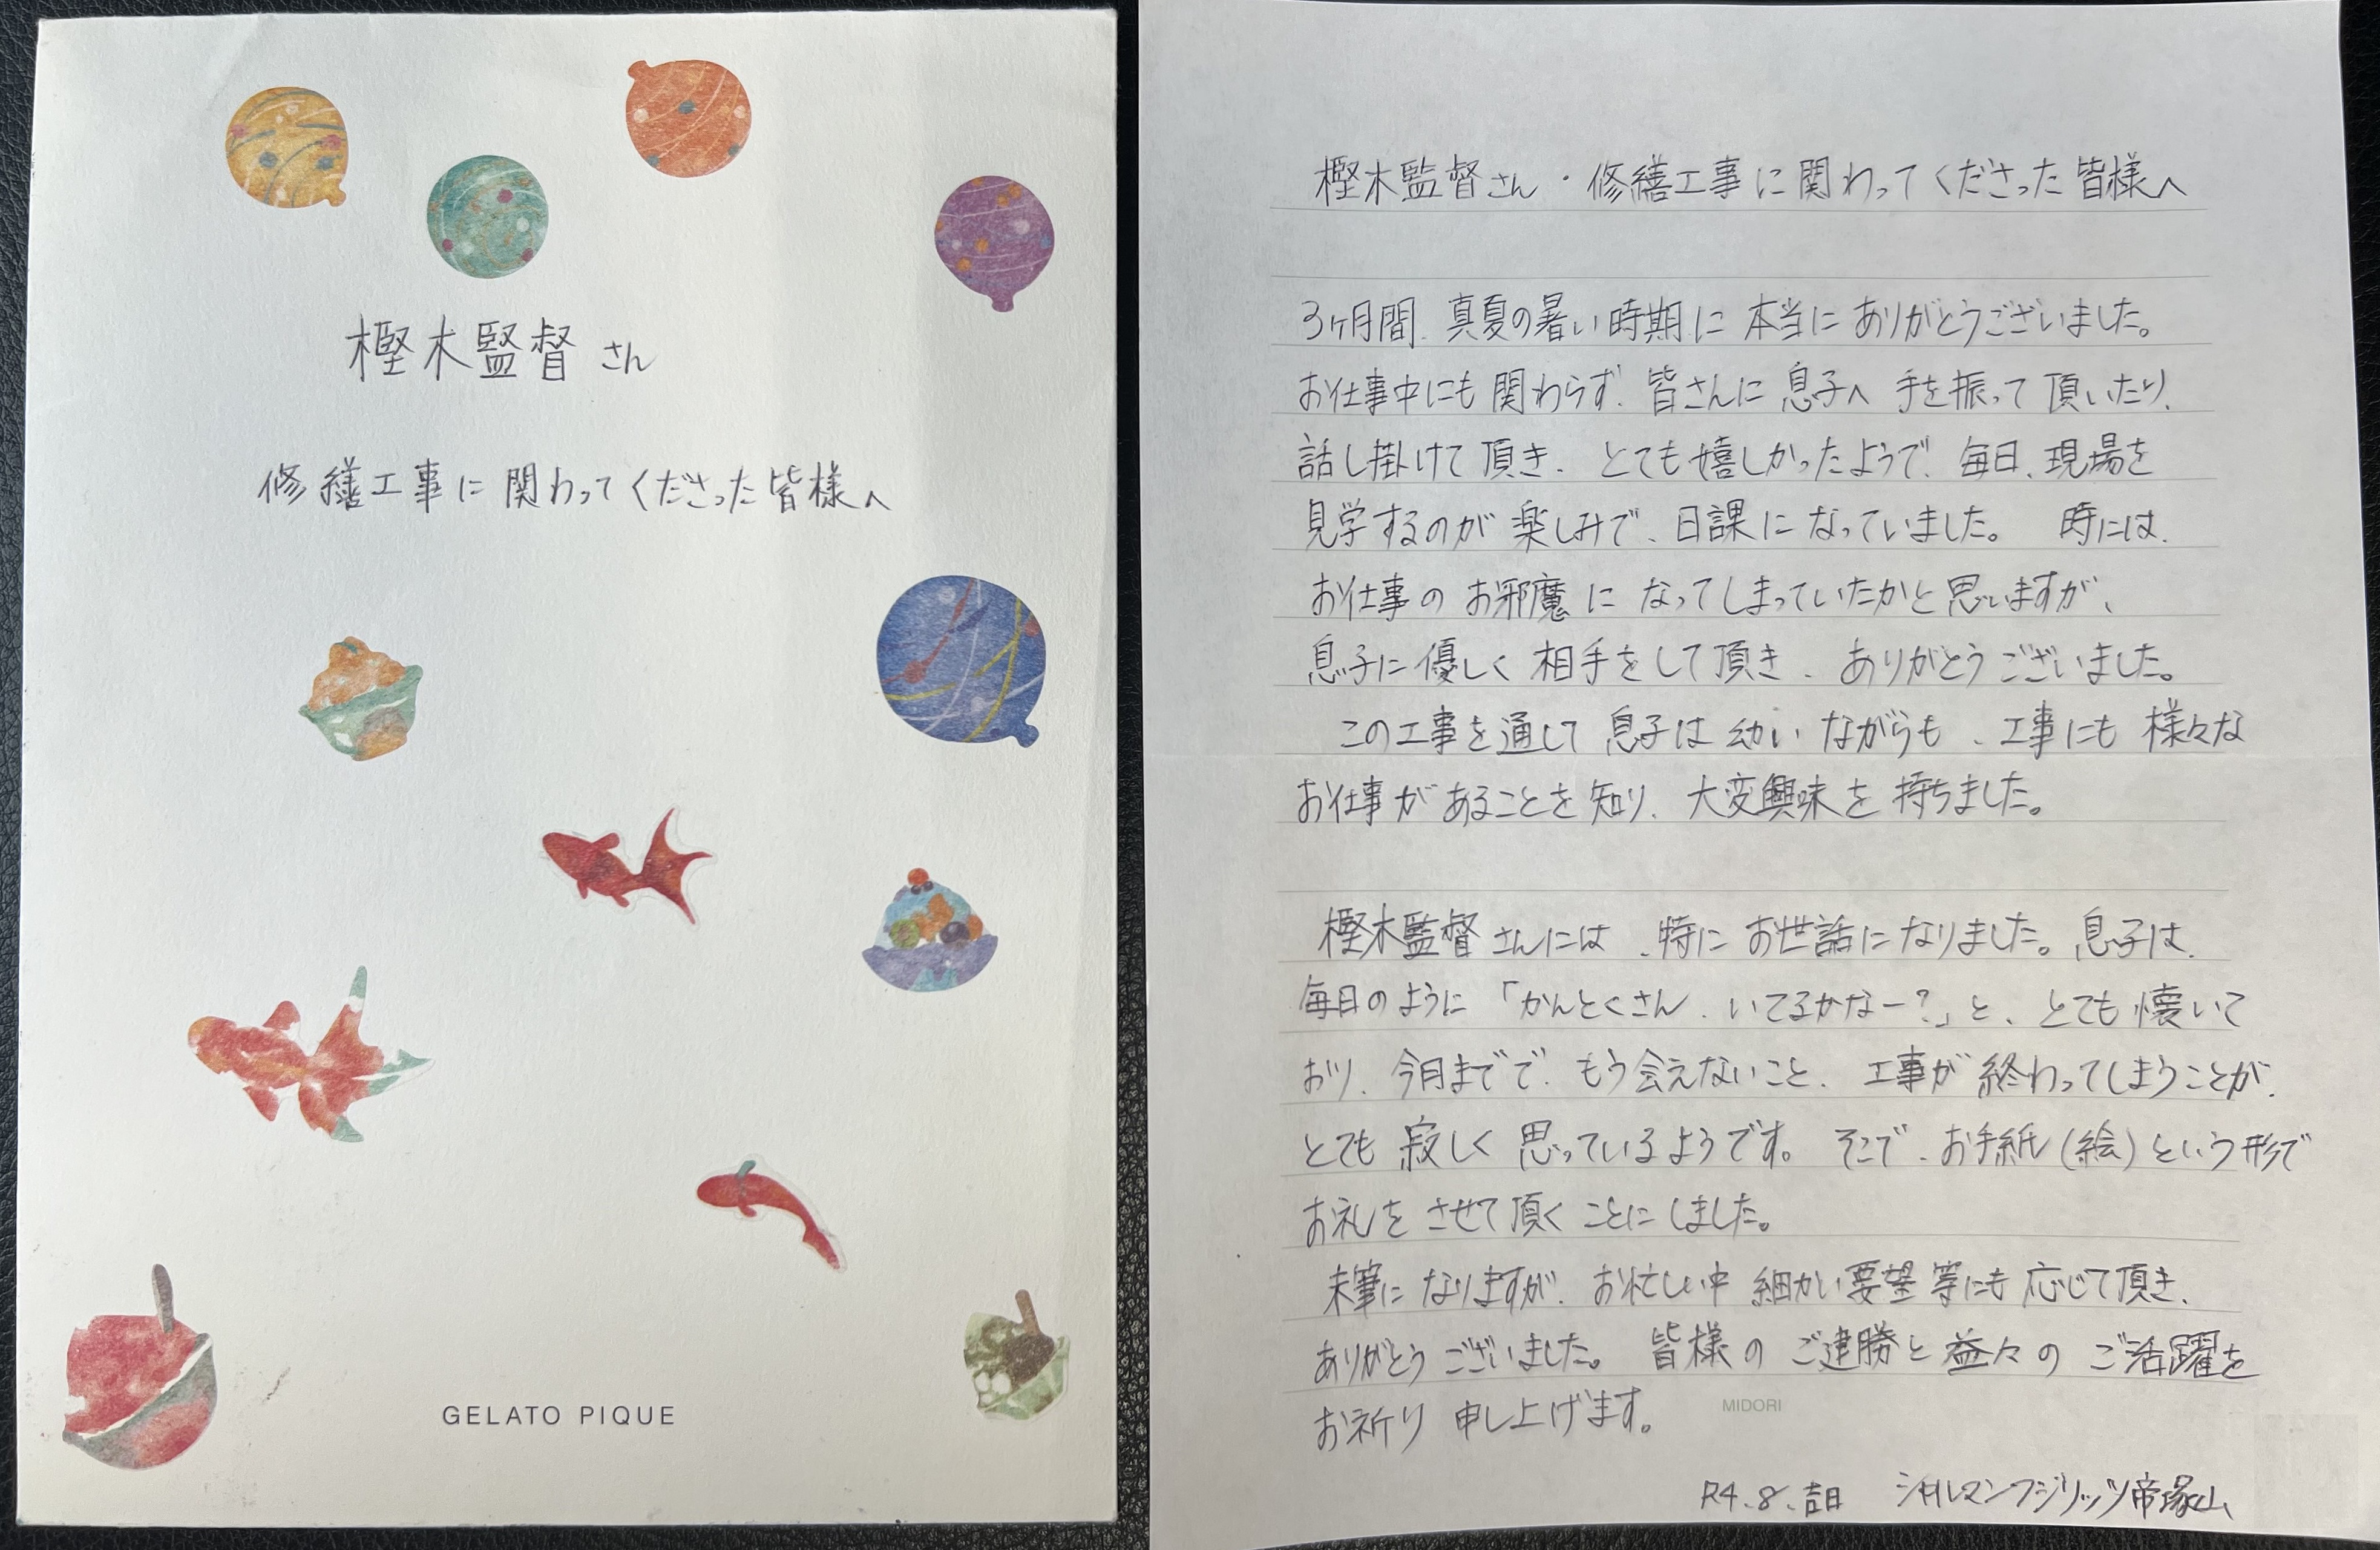 樫木監督さん
修繕工事に関わってくださった皆様へ
GELATO PIQUE
樫木監督さん・修繕工事に関わってくださった皆様へ
3ヶ月間、真夏の暑い時期に本当にありがとうございました。
お仕事中にも関わらず、皆さんに息子へ手を振って頂いたり、
話し掛けて頂き、とても嬉しかったようで、毎日、現場を
見学するのが楽しみで、日課になっていました。 時には、
お仕事のお邪魔になってしまっていたかと思いますが、
息子に優しく相手をして頂き、ありがとうございました。
この工事を通して息子は幼いながらも、工事にも様々な
お仕事があることを知り、大変興味を持ちました。
樫木監督さんには、特にお世話になりました。息子は、
毎日のように「かんとくさん、いてるかなー?」と、とても懐いて
おり、今月までで、もう会えないこと、工事が終わってしまうことが、
とても寂しく思っているようです。そこで、お手紙(絵)という形で
お礼をさせて頂くことにしました。
末筆になりますが、お忙しい中細かい要望等にも応じて頂き、
ありがとうございました。皆様のご健勝と益々のご活躍を
お祈り申し上げます。
MIDORI
R4.8.吉日 シャルマンフジリッツ帝塚山